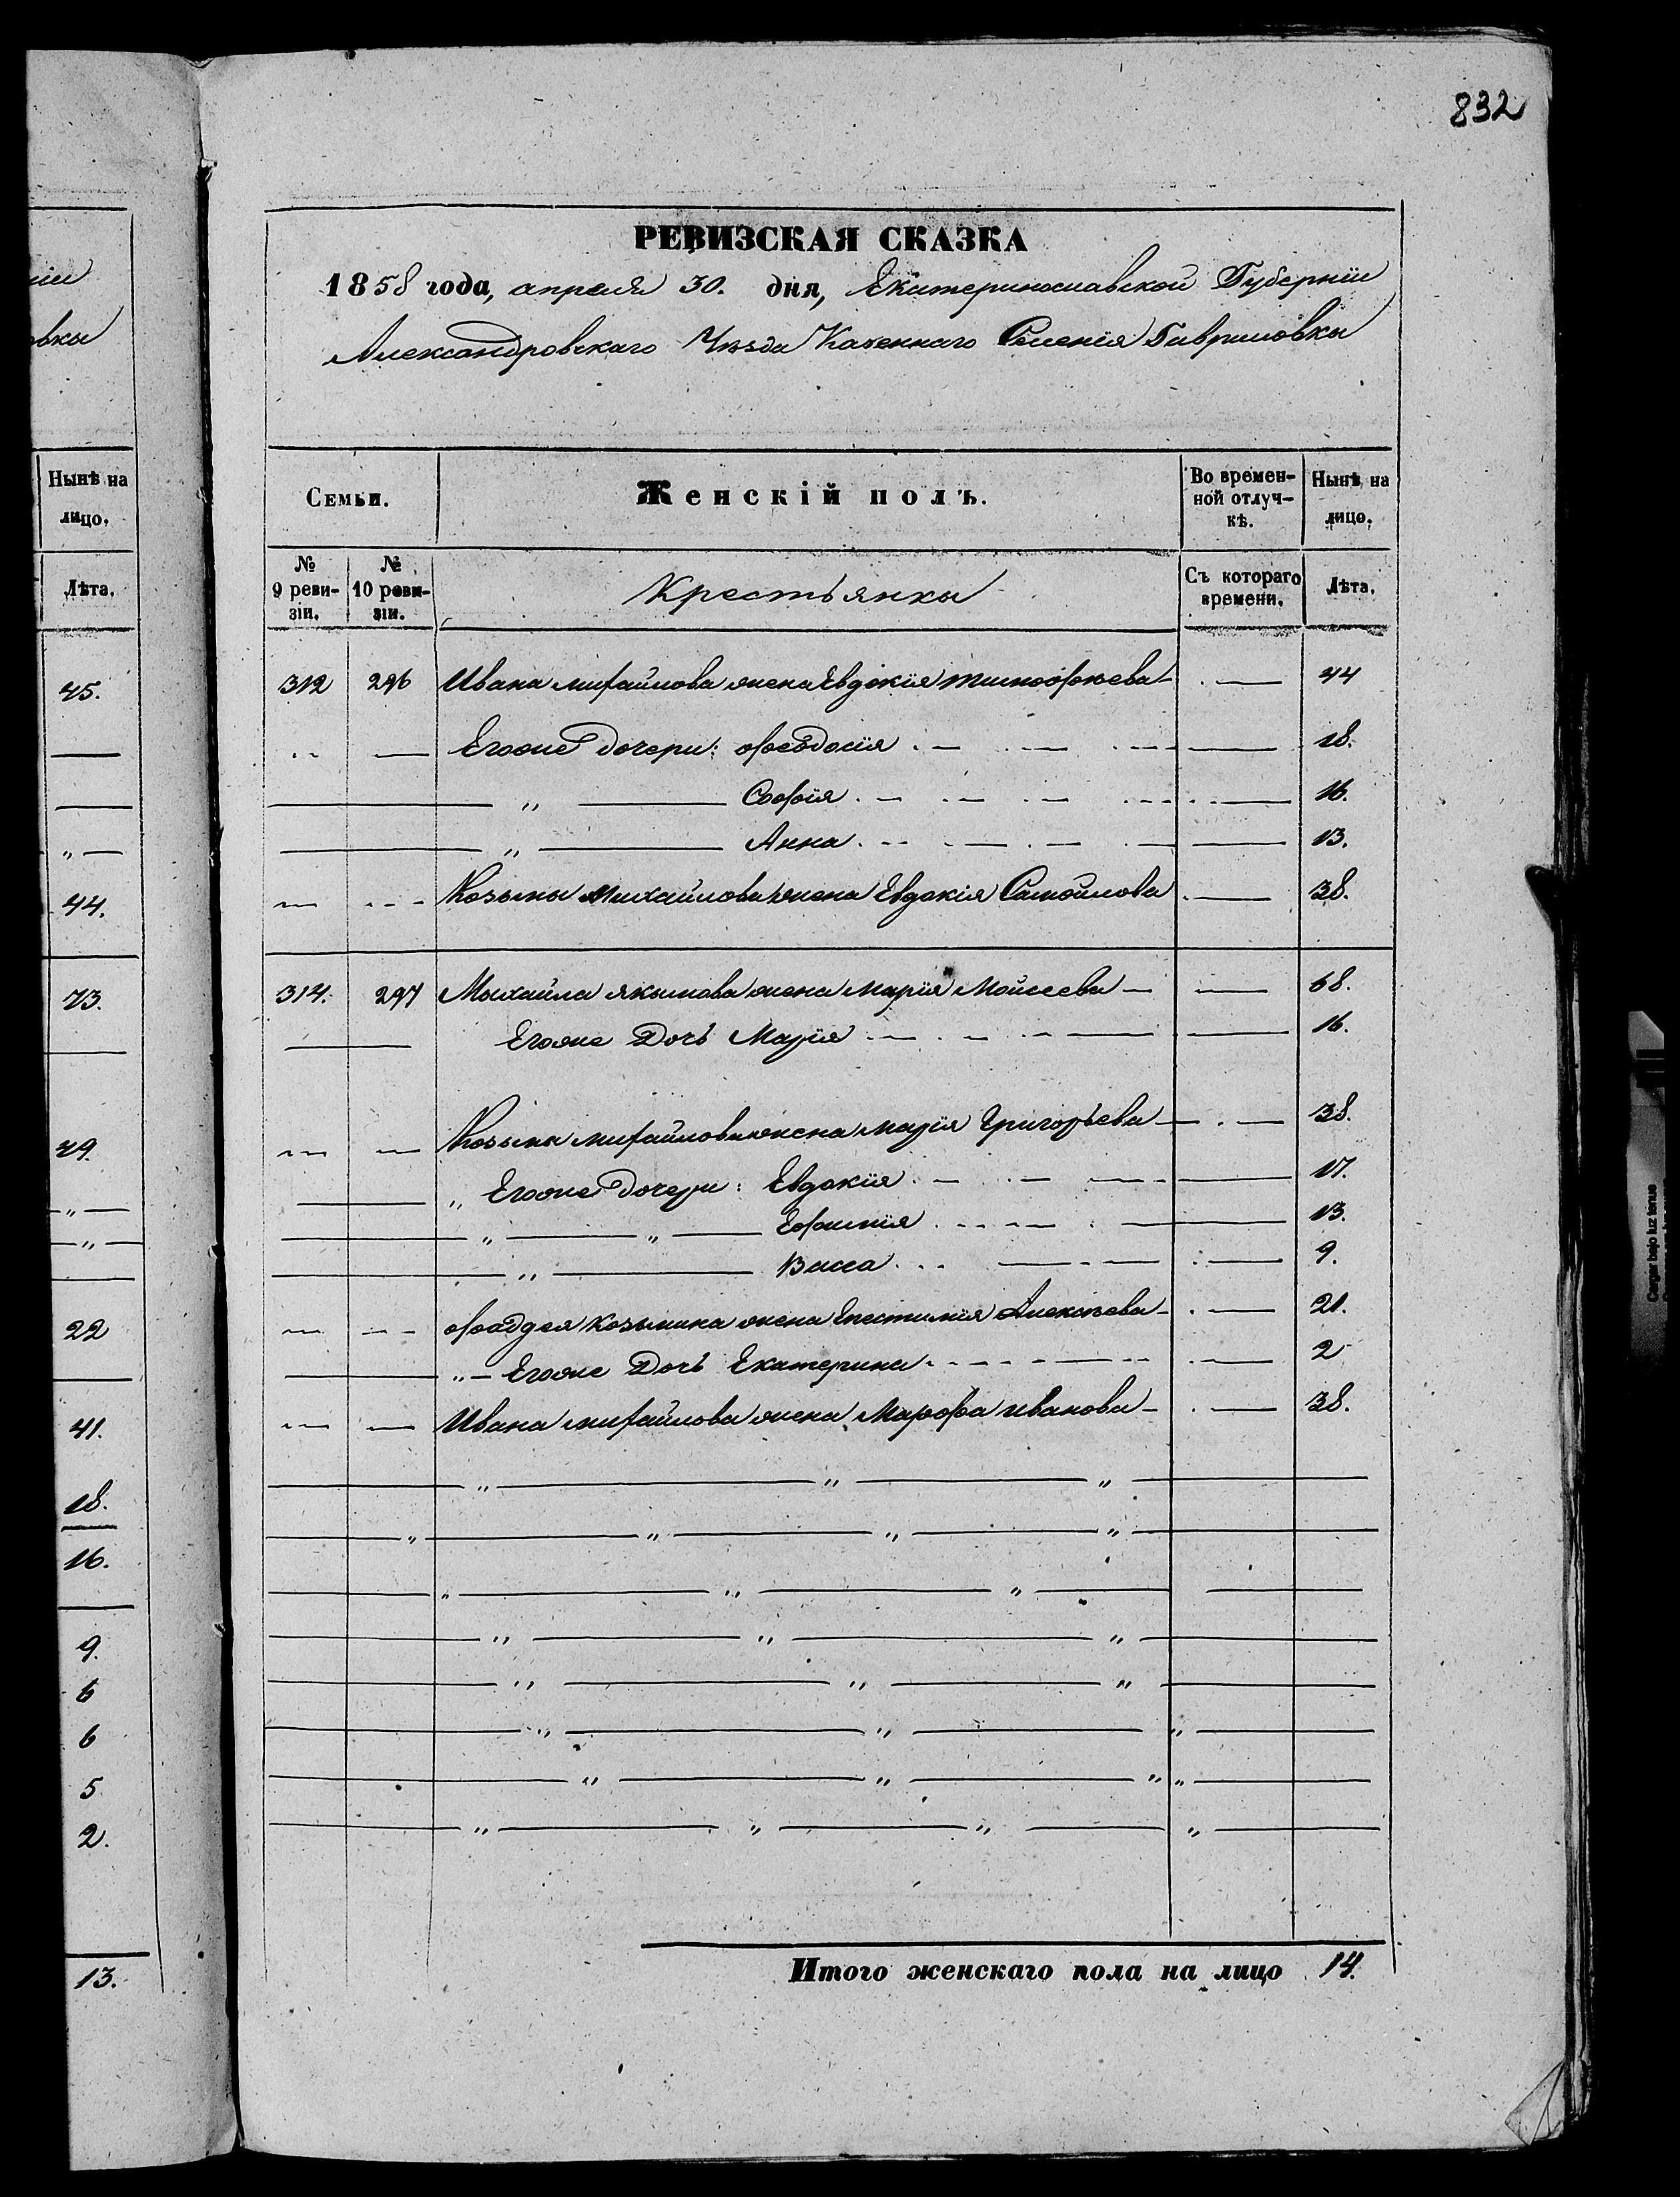 832
РЕВИЗСКАЯ СКАЗКА
1858 года, апреля 30. дня, Екатеринославской Губернїи
Александровскаго Уѣзда Казеннаго Селенія Гавриловки
Семьи.
Женскій полъ.
Во времен-
ной отлуч-
кѣ.
Нынѣ на
лицо.
№
9 реви-
зіи.
№
10 реви-
зіи.
Крестьянки
Съ котораго
времени.
Лѣта.
312 296 Ивана михайлова жена Евдокїя тимофѣева 44
Егоже дочери: феодосїя 18.
" Софїя 16.
" Анна 13.
Козьмы Михайлова жена Евдокія Самойлова 38.
314. 297 Михайла якимова жена Марїя Мойсеева 68.
Егоже Дочь Марїя 16.
Козьмы михайлова жена марїя Григорьева 38.
" Егоже дочери: Евдокїя 17.
" " Ефимїя 13.
" Васса 9.
фаддея козьмина жена Епистимїя Алексѣева 21.
" Егоже Дочь Екатерина 2
Ивана михайлова жена Марфа иванова 38.
Итого женскаго пола на лицо 14.
нїи
овки
Нынѣ на
лицо.
Лѣта.
45.
"
44.
73.
49.
"
"
22
41.
18.
16.
9.
6
6
5
2.
13.